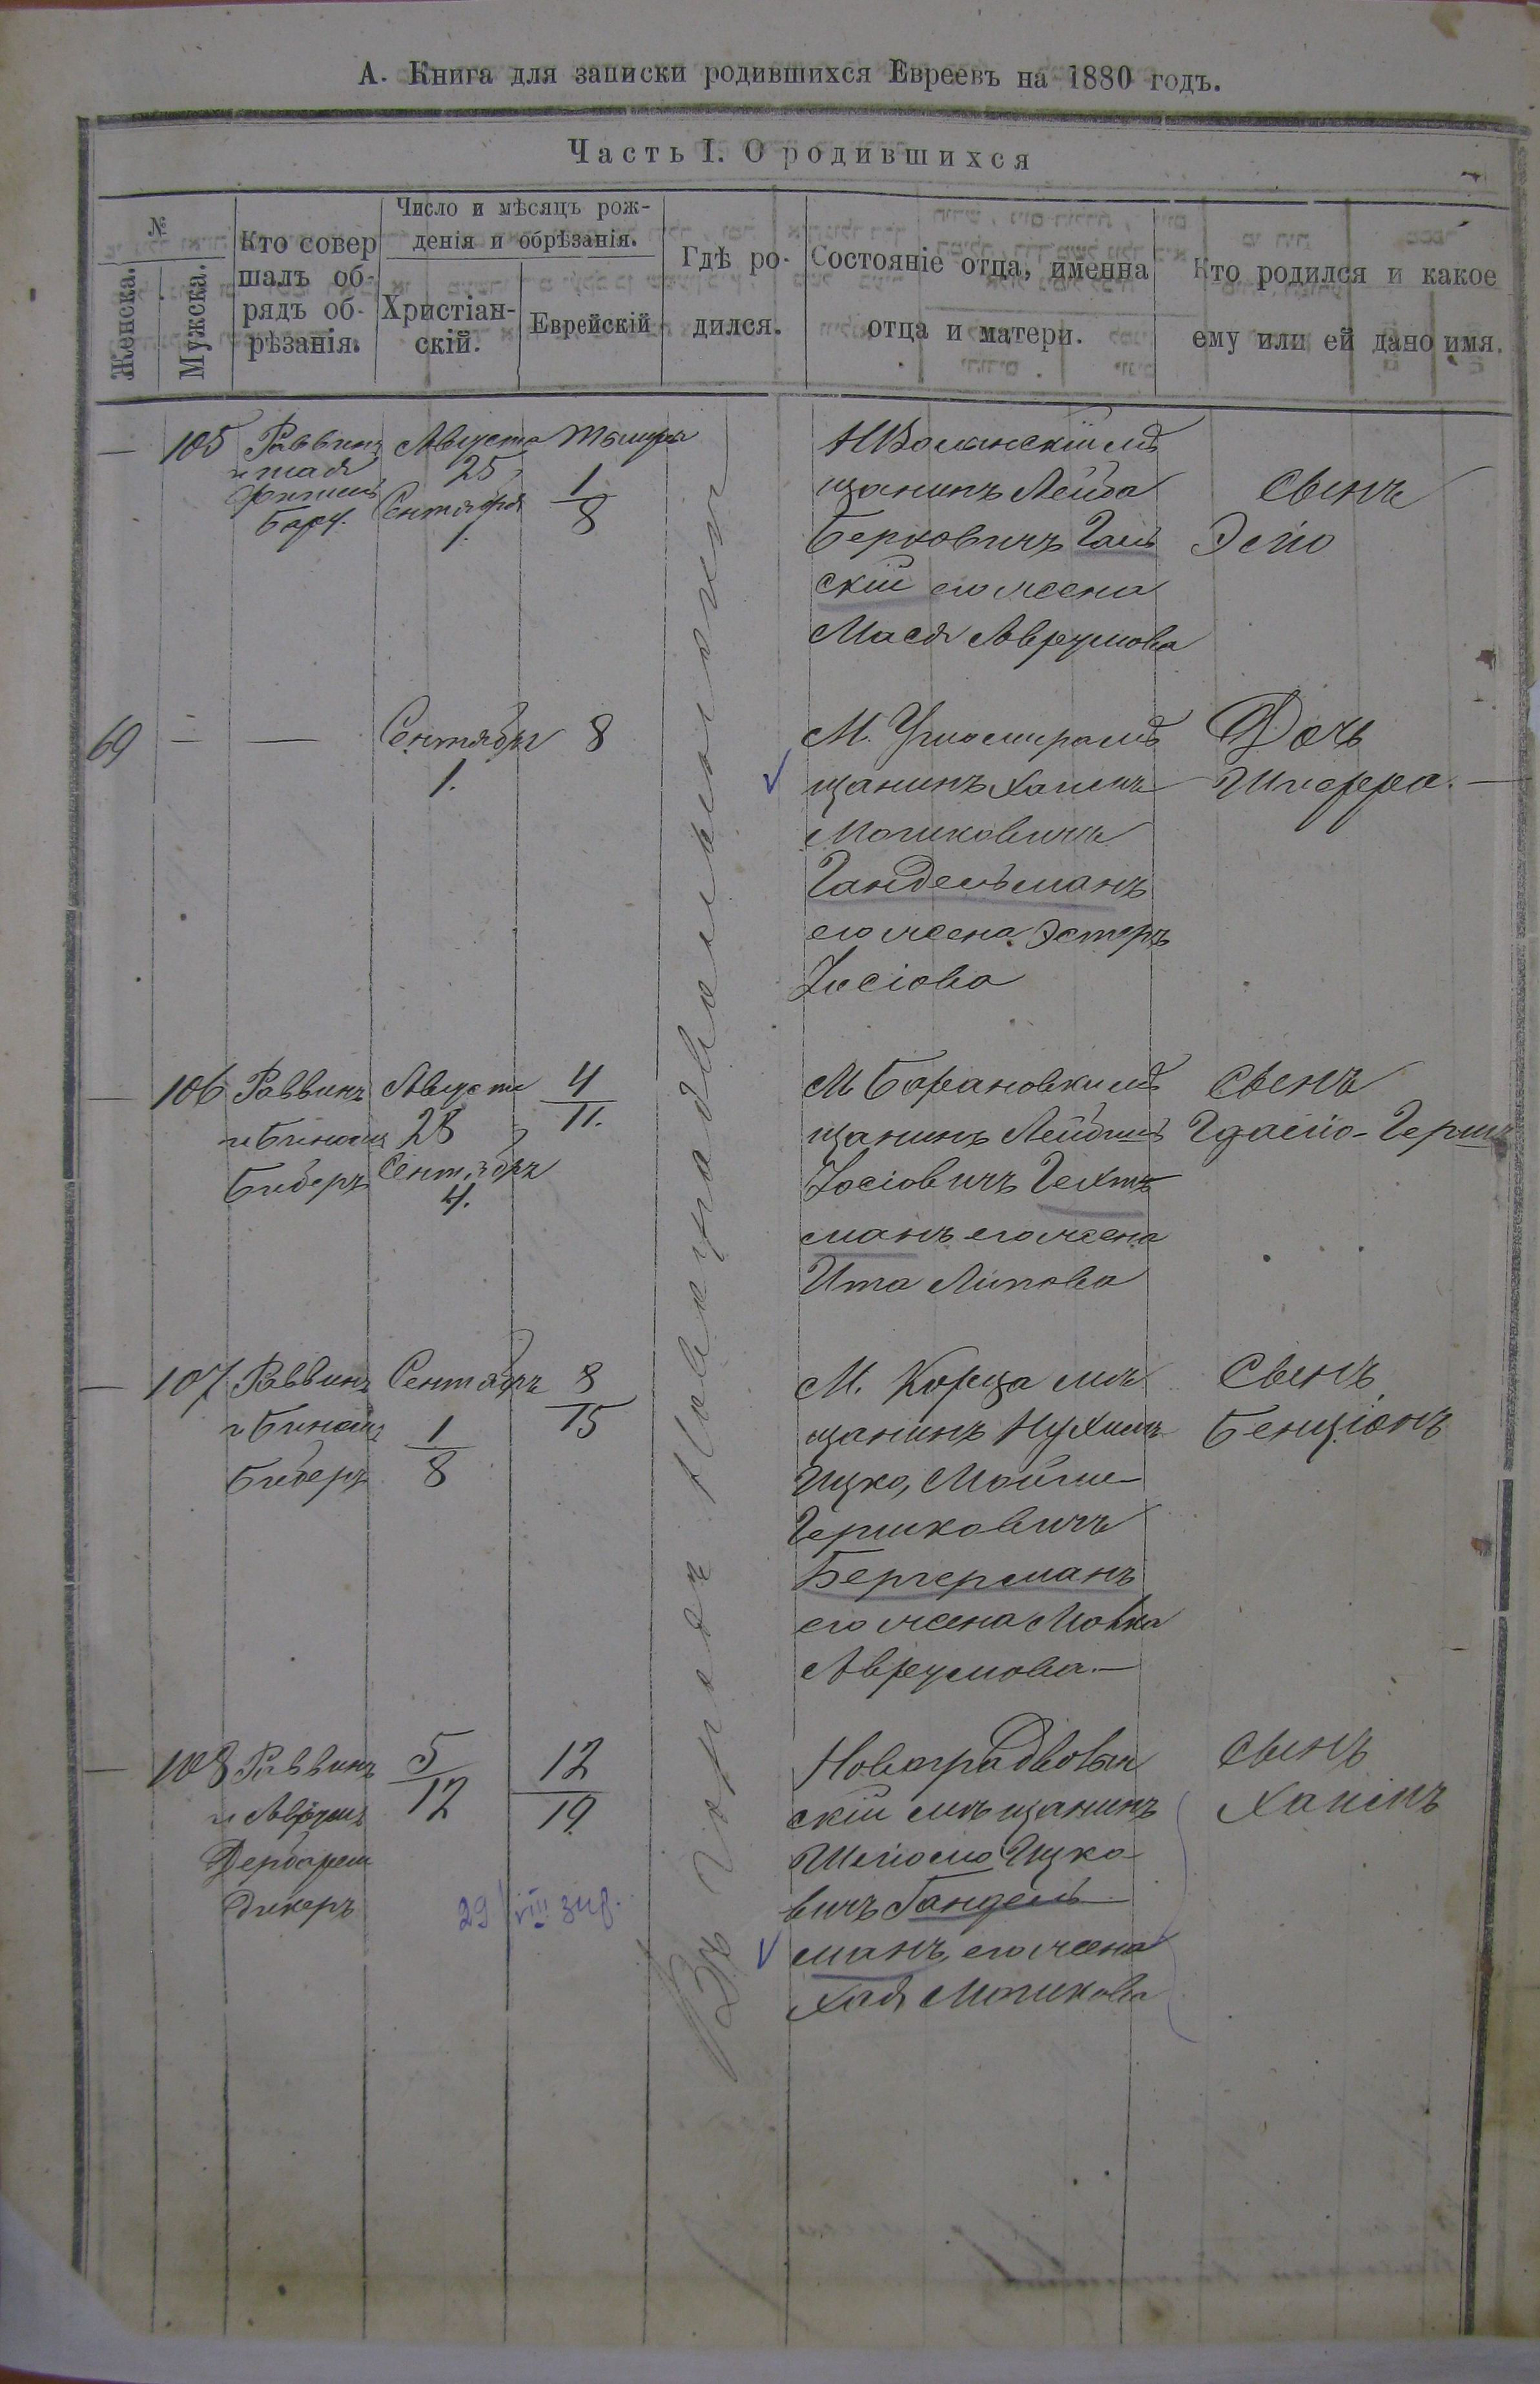 А. Книга для записки родившихся Евреевъ на 1880 годъ.
Часть I. О родившихся
№
Женска.
Мужска.
Кто совер
шалъ об-
рядъ об-
рѣзанія.
Число и мѣсяцъ рож-
денія и обрѣзанія.
Христіан-
скій.
Еврейскій
Гдѣ ро-
дился.
Состояніе отца, именна
отца и матери.
Кто родился и какое
ему или ей дано имя.
Въ городѣ Новоградволынскѣ
— 105
Раввинъ
Августа
25
Сентября
1
Тишри
1
8
НВолынскій мѣ
щанинъ Лейба
Берковичъ
скій его жена
Мася Аврумова
Сынъ
69 — —
Сентября
1.
8
мѣ
щанинъ Хаимъ
Мошковичъ
Гандельманъ
его жена Эстеръ
Іосіова
Дочь
Шифра. —
— 106
Раввинъ
и
Биберъ
Августа
28
Сентября
4.
4
11.
М Барановки мѣ
щанинъ Лейбишъ
Іосіовичъ Гехт
манъ его жена
Ита Липова
Сынъ
Гдаліо-Герш
— 107
Раввинъ
и
Биберъ
Сентябръ
1
8
8
15
М. Корца мѣ
щанинъ Нухимъ
Ицко, Мойше
Гершковичъ
Бергерманъ
его жена
Аврумова.—
Сынъ
Бенціонъ
— 108
Раввинъ
и Аврумъ
Дербарем
дикеръ
5
12
12
19
29/VIII
Новоградволын
скій мѣщанинъ
Шліомо Ицко
вичъ Гандель
манъ, его жена
Хая Мошкова
Сынъ
Хаимъ